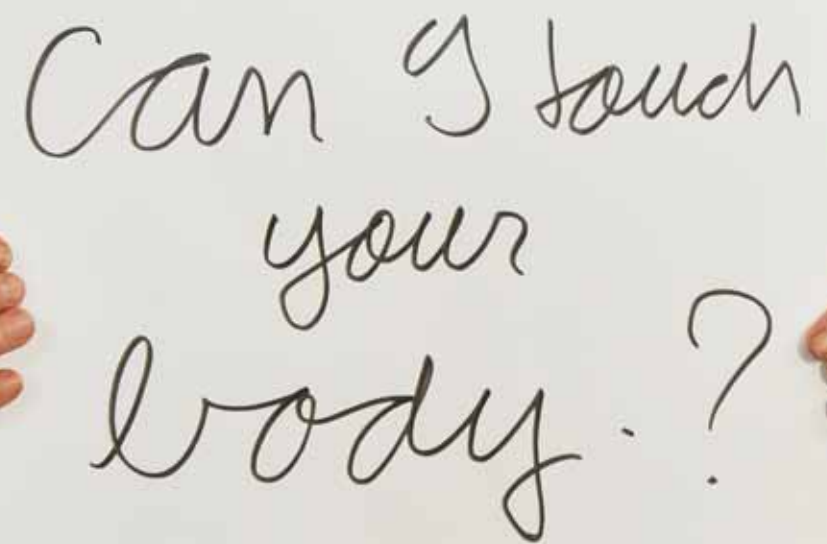 Can I touch
your
body.?